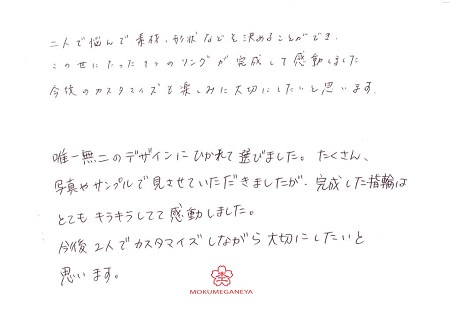 二人で悩んで素材、形状などを決めることができ、
この世にたった1つのリングが完成して感動しました
今後のカスタマイズも楽しみに大切にしたいと思います.
唯一無二のデザインにひかれて選びました。たくさん、
写真やサンプルで見させていただきましたが、完成した指輪は
とてもキラキラしてて感動しました。
今後2人でカスタマイズしながら大切にしたいと
思います。
MOKUMEGANEYA